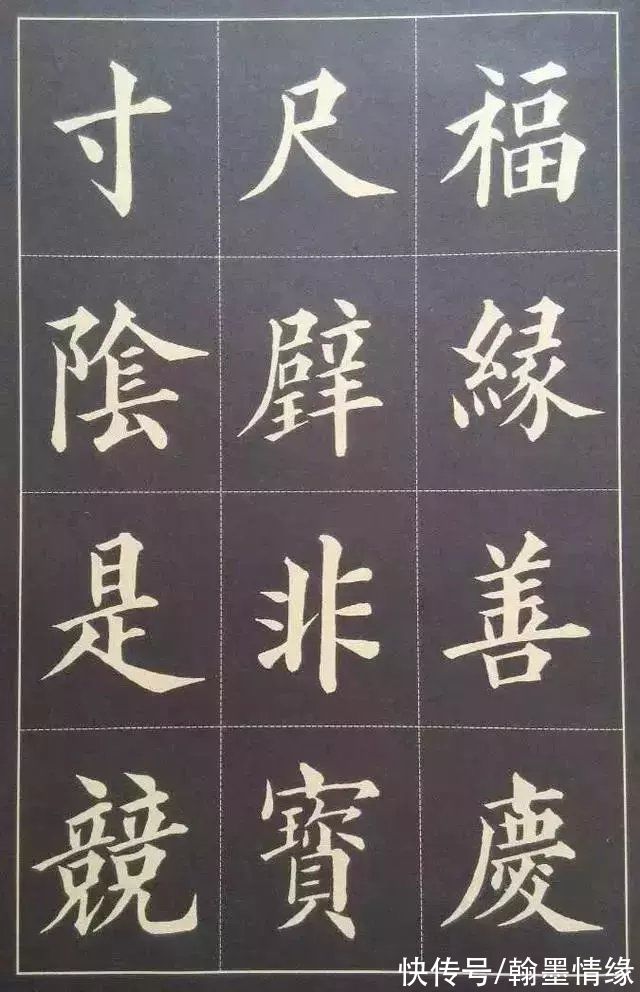 福緣善慶
尺璧非寶
寸陰是競
快传号/翰墨情缘